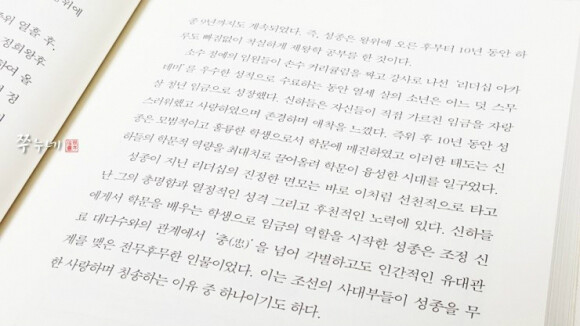 위에
위 열흘 후,
정희왕후
하여 올
정
쭉누네
종 9년까지도 계속되었다. 즉, 성종은 왕위에 오른 후부터 10년 동안 하
루도 빠짐없이 착실하게 제왕학 공부를 한 것이다.
소수 정예의 임원들이 손수 커리큘럼을 짜고 강사로 나선 '리더십 아카
데미'를 우수한 성적으로 수료하는 동안 열세 살의 소년은 어느 덧 스무
살 청년 임금으로 성장했다. 신하들은 자신들이 직접 가르친 임금을 자랑
스러워했고 사랑하였으며 존경하며 애착을 느꼈다. 즉위 후 10년 동안 성
종은 모범적이고 훌륭한 학생으로서 학문에 매진하였고 이러한 태도는 신
하들의 학문적 역량을 최대치로 끌어올려 학문이 융성한 시대를 일구었다.
성종이 지닌 리더십의 진정한 면모는 바로 이처럼 선천적으로 타고
난 그의 총명함과 열정적인 성격 그리고 후천적인 노력에 있다. 신하들
에게서 학문을 배우는 학생으로 임금의 역할을 시작한 성종은 조정 신
료 대다수와의 관계에서 '충(忠)'을 넘어 각별하고도 인간적인 유대관
계를 맺은 전무후무한 인물이었다. 이는 조선의 사대부들이 성종을 무
한 사랑하며 칭송하는 이유 중 하나이기도 하다.